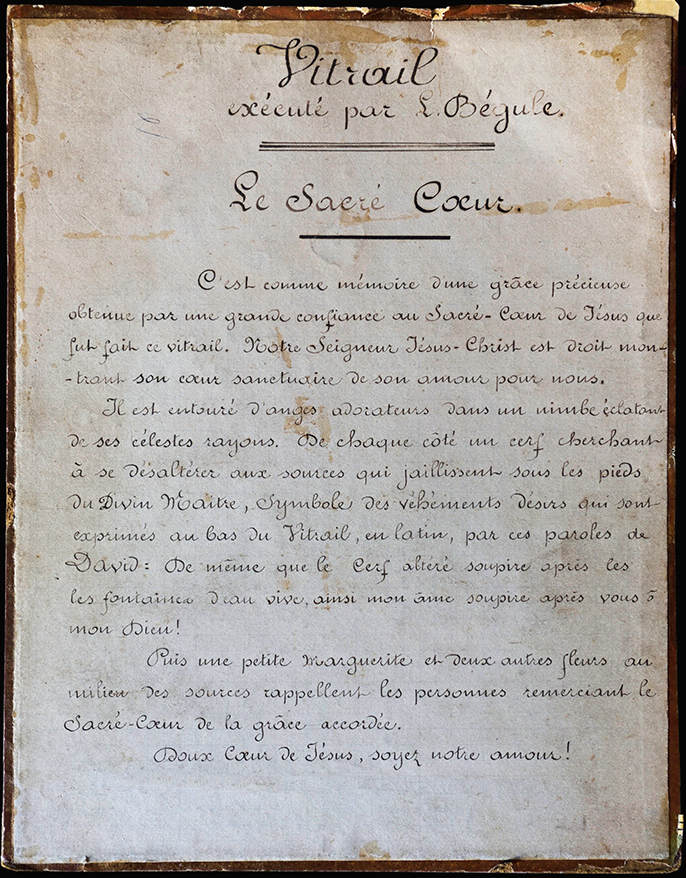 Vitrail
exécuté par L. Bégule.
Le Sacré Cœur.
C'est comme mémoire d'une grâce précieuse
obtenue par une grande confiance au Sacré-Cœur de Jésus que
fut fait ce vitrail. Notre Seigneur Jésus-Christ est droit mon-
-trant son cœur sanctuaire de son amour pour nous.
Il est entouré d'anges adorateurs dans un nimbe éclatant
de ses célestes rayons. De chaque côté un cerf cherchant
à se désaltérer aux sources qui jaillissent sous les pieds
du Divin Maître, Symbole des véhéments désirs qui sont
exprimés au bas du Vitrail, en latin, par ces paroles de
David: De même que le Cerf altéré soupire après les
les fontaines d'eau vive, ainsi mon âme soupire après vous ô
mon Dieu!
Puis une petite Marguerite et deux autres fleurs au
milieu des sources rappellent les personnes remerciant le
Sacré-Cœur de la grâce accordée.
Doux Cœur de Jésus, soyez notre amour!